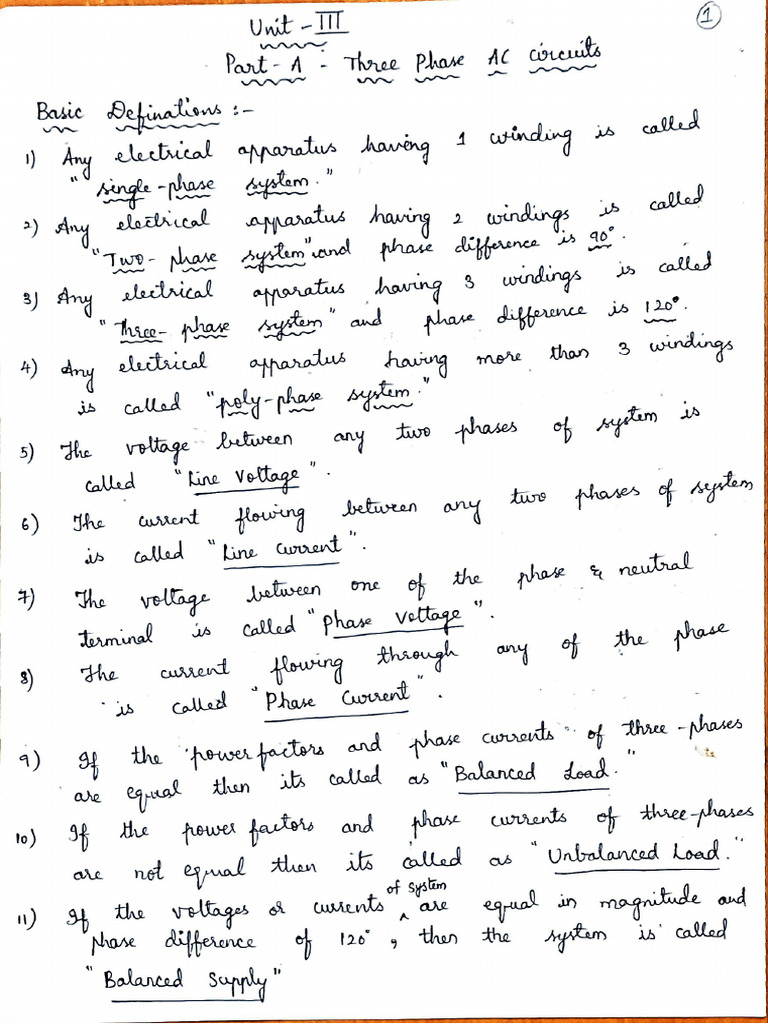 1
Unit - III
Part - A - Three Phase AC circuits
Basic Definations :-
1) Any electrical apparatus having 1 winding is called
"single-phase system."
2) Any electrical apparatus having 2 windings is called
"Two-phase system" and phase difference is 90°.
3) Any electrical apparatus having 3 windings is called
"Three-phase system" and phase difference is 120°.
4) Any electrical apparatus having more than 3 windings
is called "poly-phase system."
5) The voltage between any two phases of system is
called "Line Voltage".
6) The current flowing between any two phases of system
is called "Line Current".
7) The voltage between one of the phase & neutral
terminal is called "Phase Voltage".
8) The current flowing through any of the phase
is called "Phase Current".
9) If the power factors and phase currents of three-phases
are equal then its called as "Balanced Load."
10) If the power factors and phase currents of three-phases
are not equal then its called as "Unbalanced Load."
11) If the voltages or currents of system are equal in magnitude and
phase difference of 120°, then the system is called
"Balanced Supply"